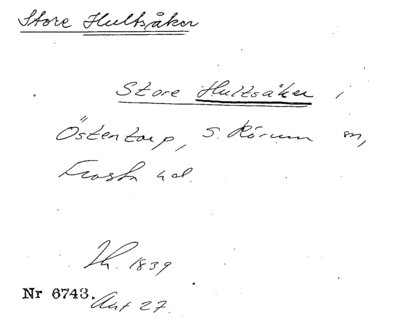 Store Hultsåker
Store Hultsåker i
Östentorp, S. Rörum sn,
Frosta hd.
Th. 1839
Nr 6743. Akt 27.